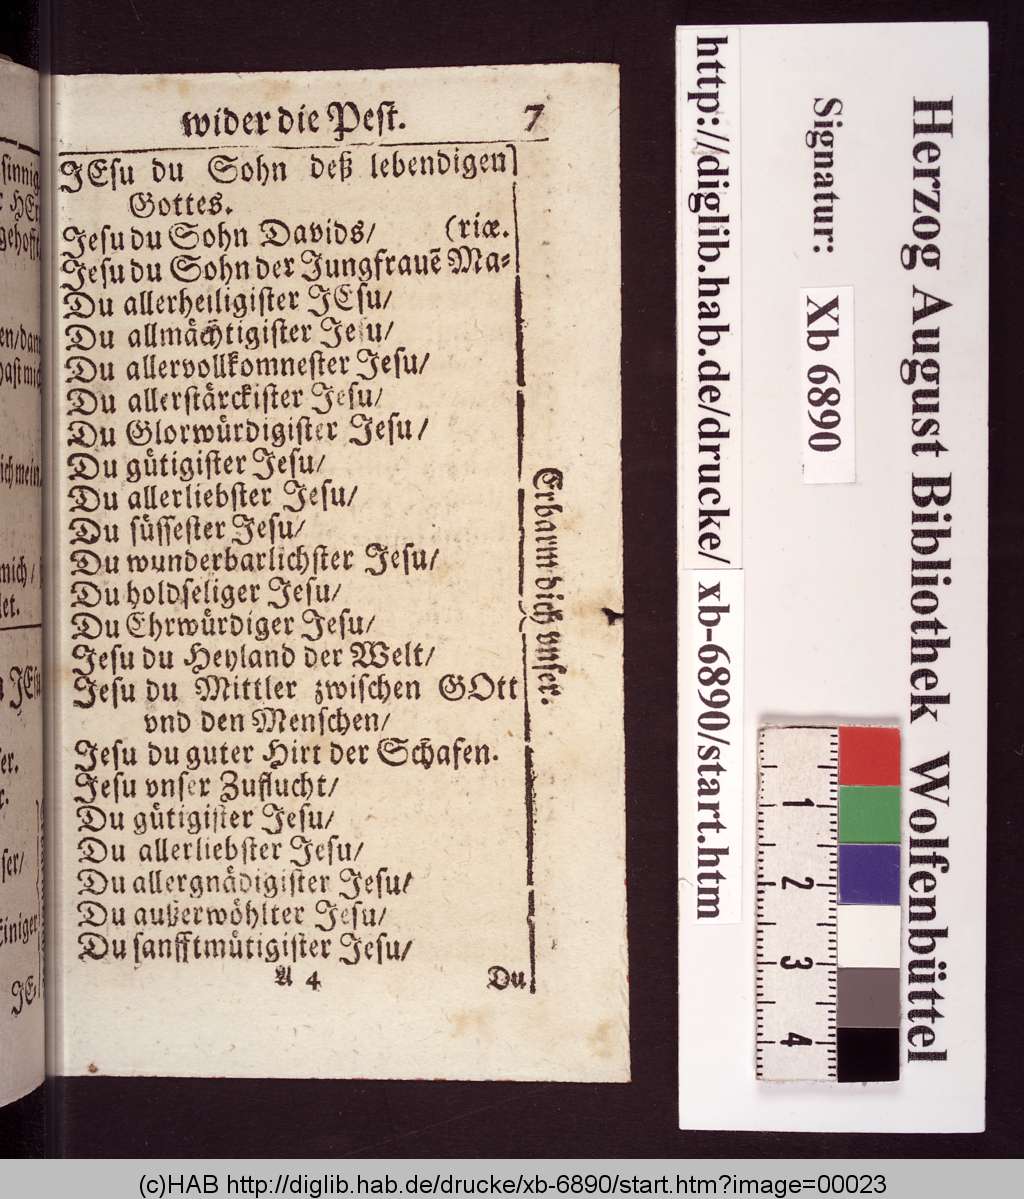 wider die Pest. 7
JEsu du Sohn deß lebendigen
Gottes.
Jesu du Sohn Davids/ (riæ.
Jesu du Sohn der Jungfrauẽ Ma-
Du allerheiligister JEsu/
Du allmächtigister Jesu/
Du allervollkomnester Jesu/
Du allerstärckister Jesu/
Du Glorwürdigister Jesu/
Du gütigister Jesu/
Du allerliebster Jesu/
Du süssester Jesu/
Du wunderbarlichster Jesu/
Du holdseliger Jesu/
Du Ehrwürdiger Jesu/
Jesu du Heyland der Welt/
Jesu du Mittler zwischen GOtt
vnd den Menschen/
Jesu du guter Hirt der Schafen.
Jesu vnser Zuflucht/
Du gütigister Jesu/
Du allerliebster Jesu/
Du allergnädigister Jesu/
Du außerwöhlter Jesu/
Du sanfftmütigister Jesu/
A 4 Du
Erbarm dich vnser.
sinnig
gehofft
en/dan
hast mich
ich mein
mich/
let.
JEsu
ser.
ser/
Einiger
JE-
http://diglib.hab.de/drucke/ xb-6890/start.htm
Signatur: Xb 6890
Herzog August Bibliothek Wolfenbüttel
1
2
3
4
(c)HAB http://diglib.hab.de/drucke/xb-6890/start.htm?image=00023